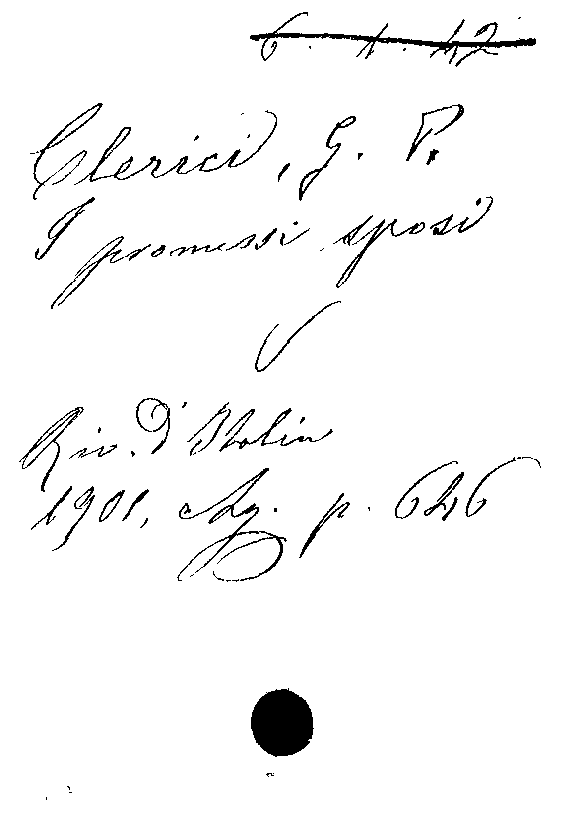 6. 1. 42
Clerici, G. P.
I promessi sposi
Riv. d'Italia
1901, Ag. p. 646